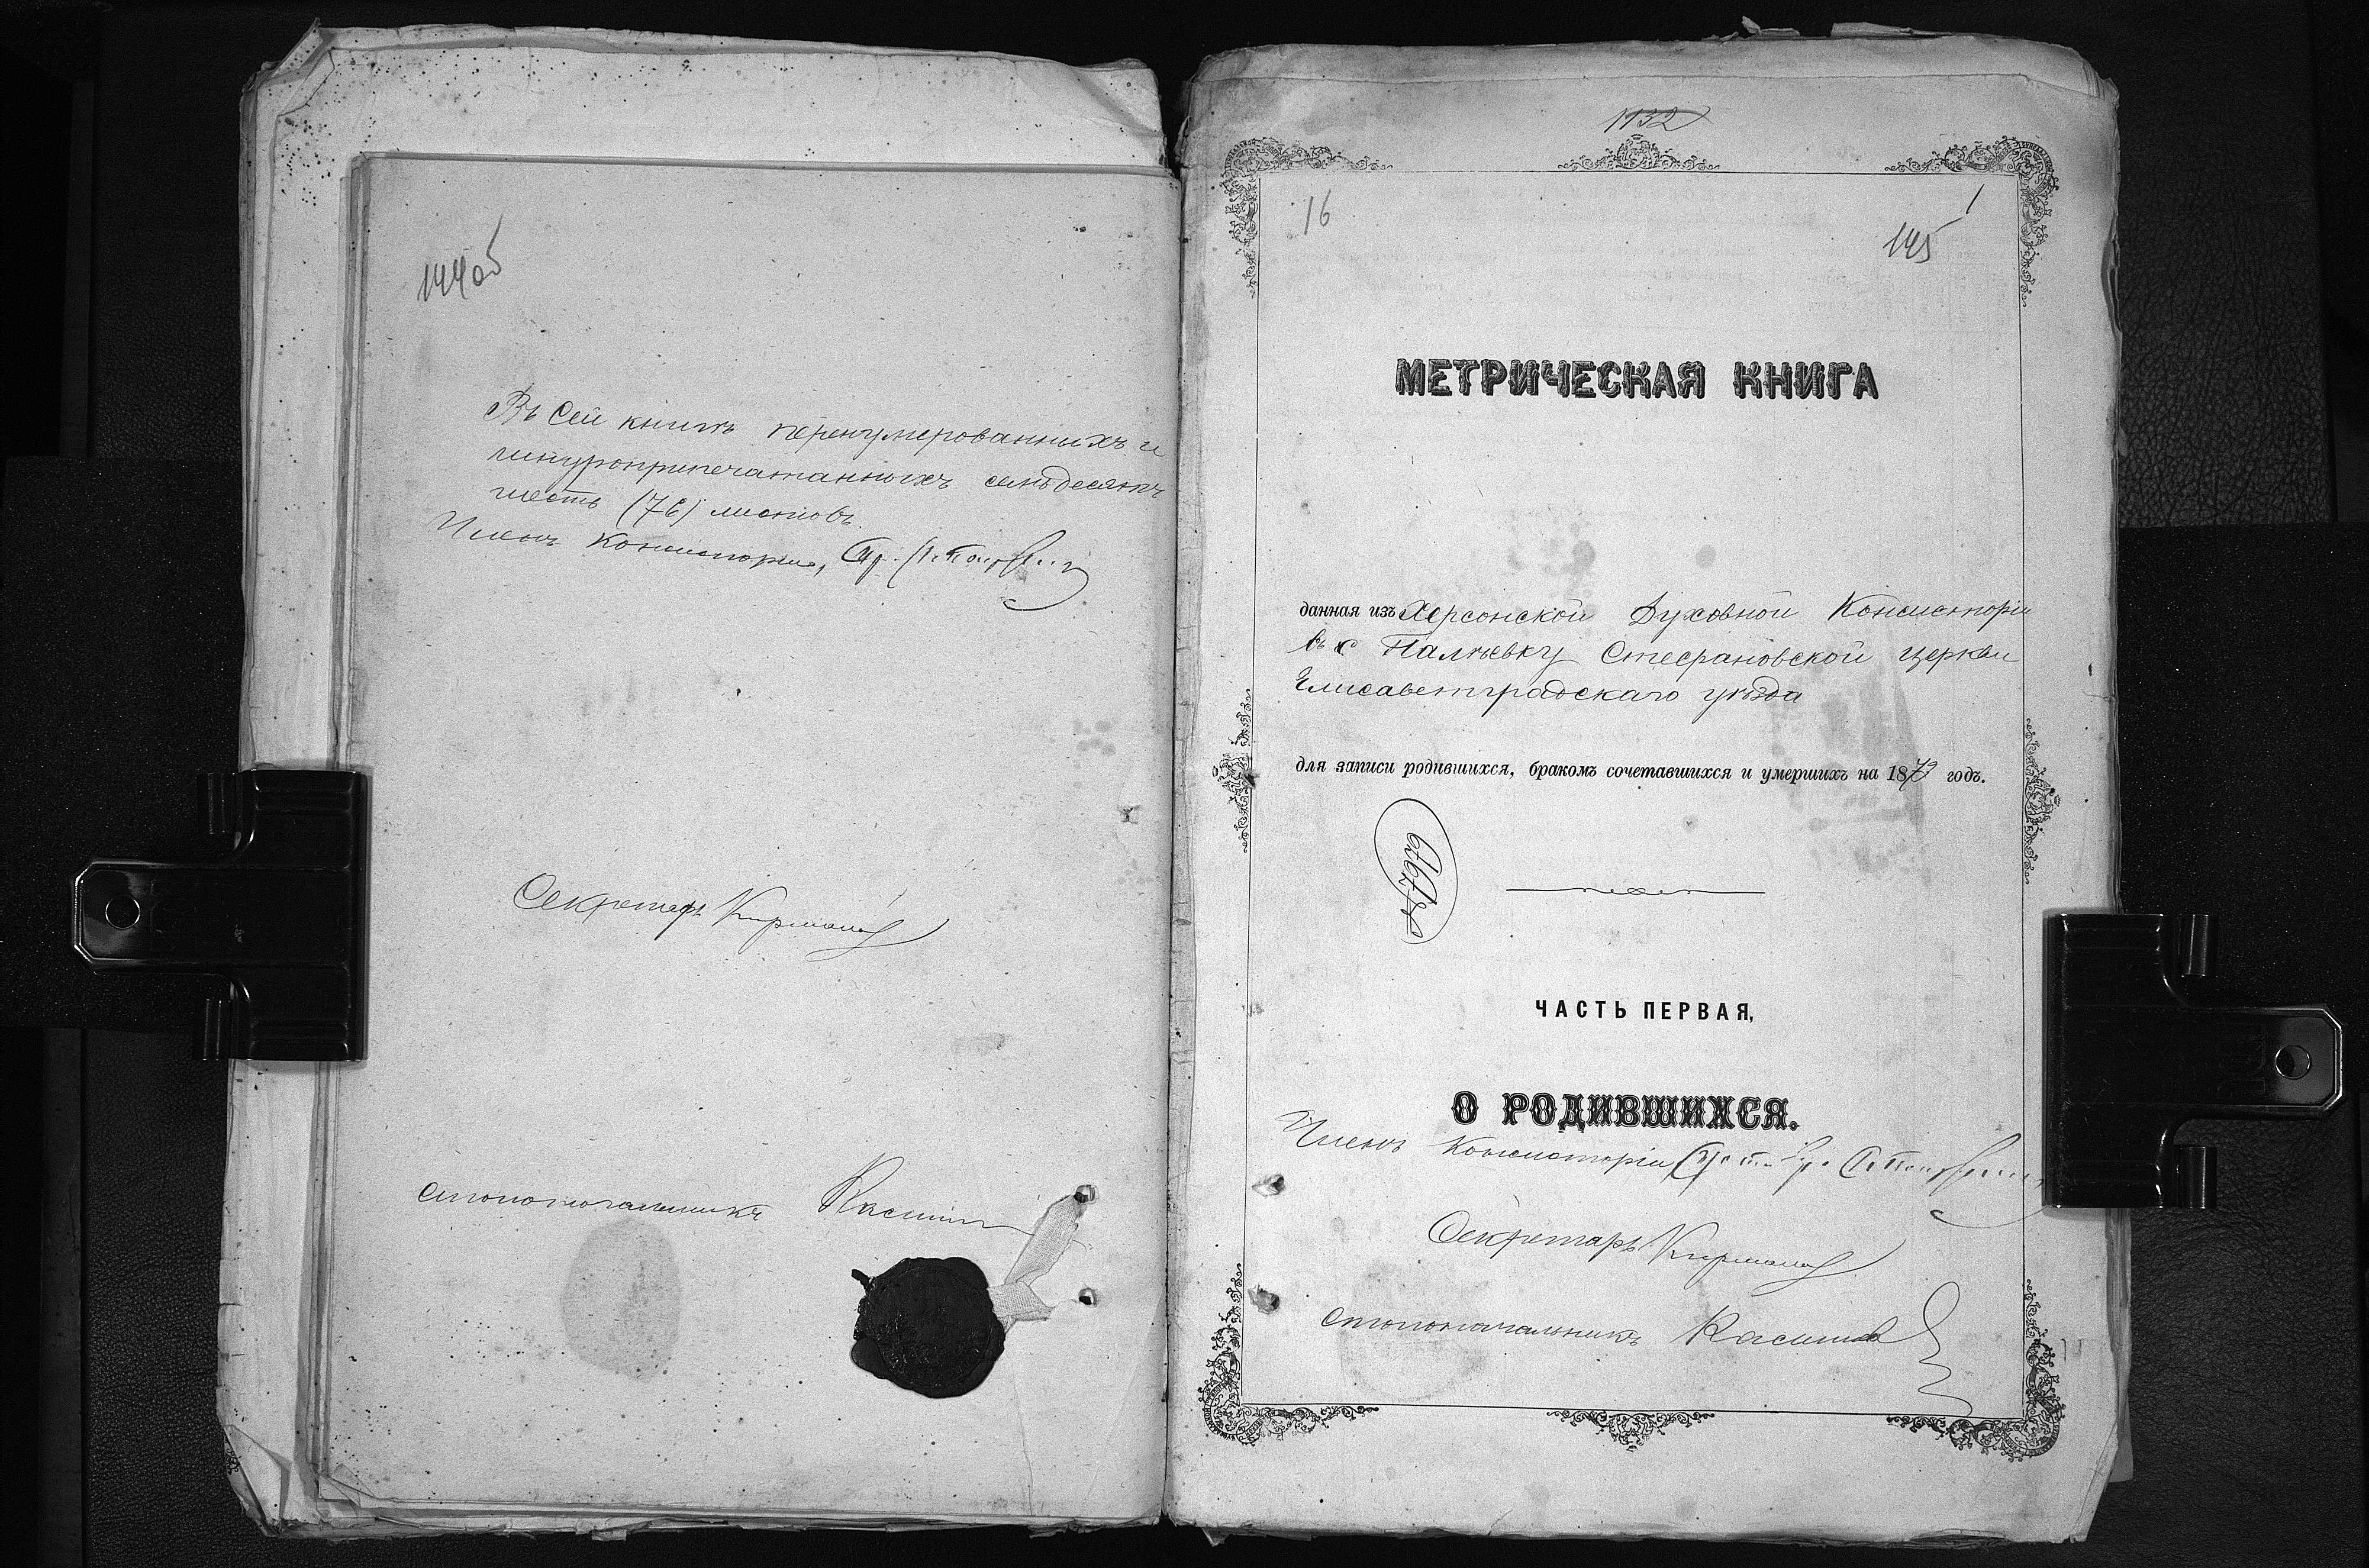 144об
Въ сей книгѣ перенумерованныхъ и
шнуроприпечатанныхъ семьдесятъ
шесть (76) листовъ.
Членъ Консисторіи,
Секретарь
Столоначальникъ
1132
16
1
145
МЕТРИЧЕСКАЯ КНИГА
данная изъ Херсонской Духовной Консисторіи
въ с Палѣевку Стефановской церкви
Елисаветградскаго уѣзда
для записи родившихся, бракомъ сочетавшихся и умершихъ на 1879 годъ.
ЧАСТЬ ПЕРВАЯ,
О РОДИВШИХСЯ.
Членъ Консисторіи
Секретарь
Столоначальникъ